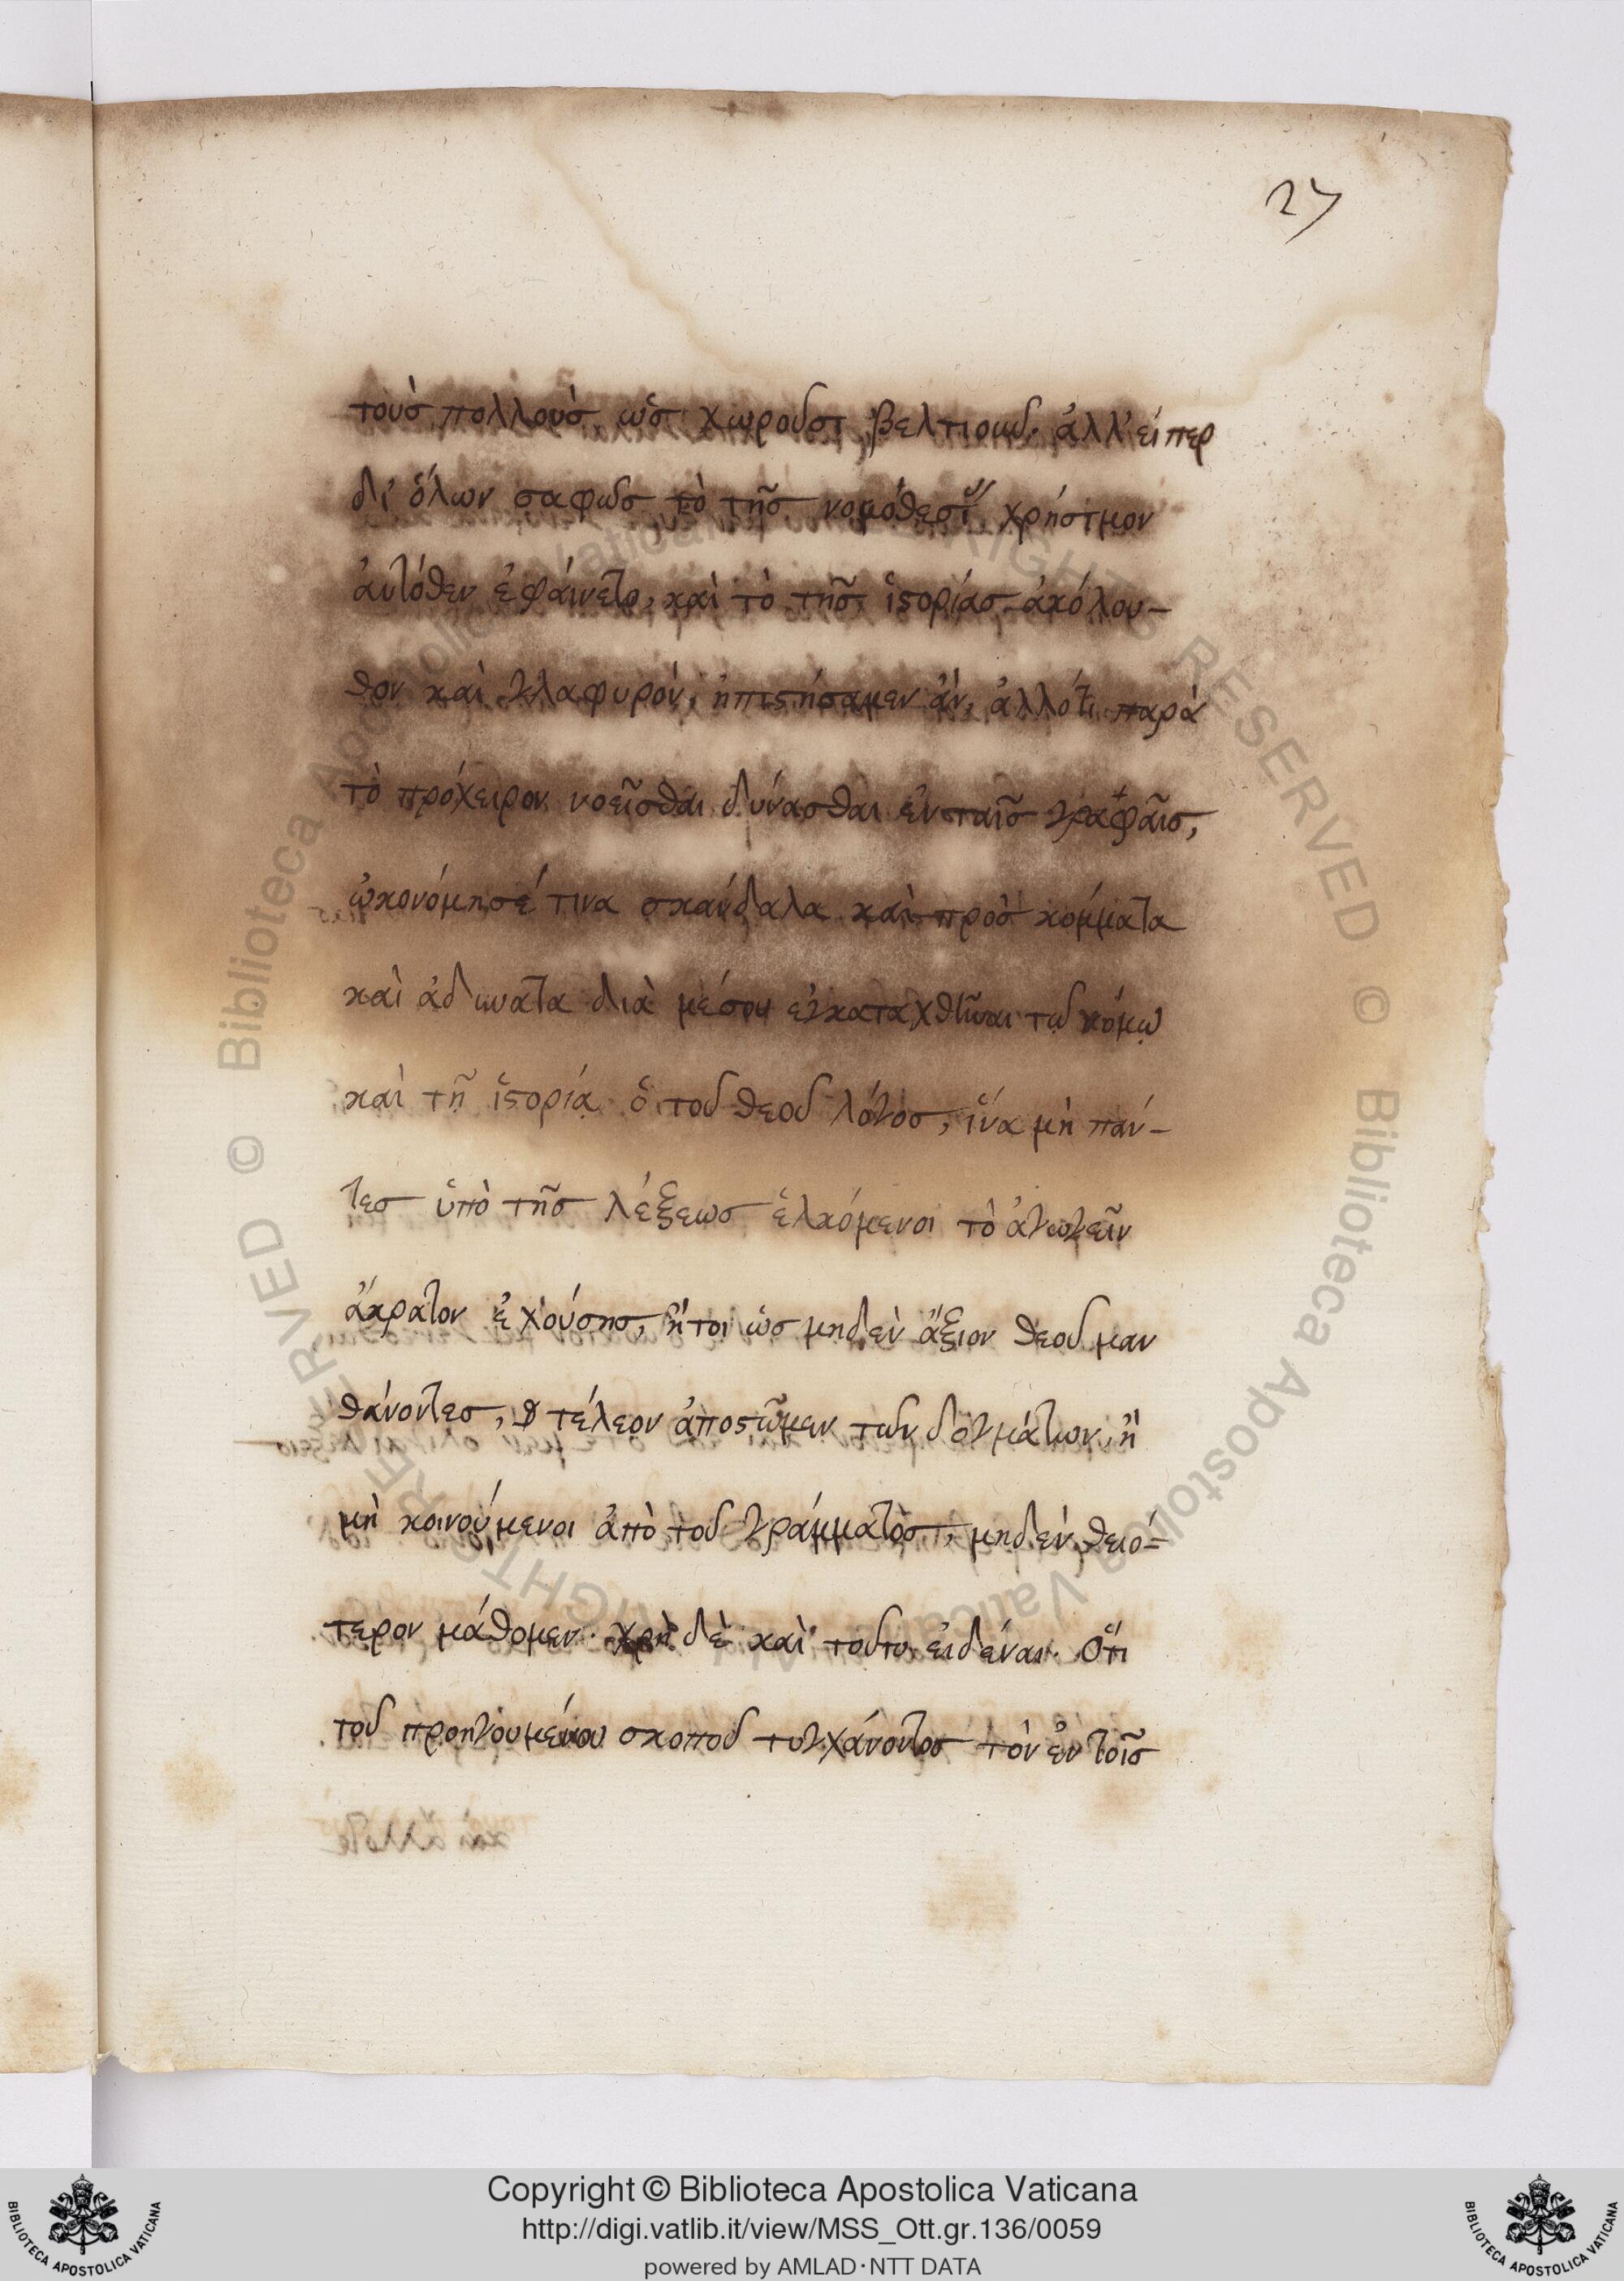 27
τοὺς πολλοὺς, ὡς χωροῦσι βελτιοῦν. ἀλλ' εἴπερ
δι' ὅλων σαφῶς τὸ τῆς νομοθεσί χρήσιμον
ἀυτόθεν ἐφάινετο, καὶ τὸ τῆς ἱστορίας ἀκόλου-
θον καὶ γλαφυρὸν, ἠπιστήσαμεν ἂν, ἀλλότι παρὰ
τὸ πρόχειρον νοεῖσθαι δύνασθαι ἐν ταῖς γραφαῖς,
ὠκονόμησέ τινα σκάνδαλα καὶ προς κόμματα
καὶ ἀδυνατα διὰ μέσου ἐγκαταχθῆναι τῷ νόμῳ
καὶ τῇ ἱστορίᾳ ὁ τοῦ θεοῦ λόγος, ἵνα μὴ πάν-
τες ὑπὸ τῆς λέξεως ἑλκόμενοι τὸ ἀγωγεῖν
ἄκρατον ἐχούσης, ἤτοι ὡς μηδὲν ἄξιον θεοῦ μαν
θάνοντες, τέλεον ἀποστῶμεν τῶν δογμάτων, ἢ
μὴ κοινούμενοι ἀπὸ τοῦ γράμματος, μηδὲν θειό-
τερον μάθομεν. χρὴ δὲ καὶ τοῦτο εἰδέναι. Ὅτι
τοῦ προηγουμένου σκοποῦ τυγχάνοντος τὸν ἐν τοῖς
Copyright © Biblioteca Apostolica Vaticana
http://digi.vatlib.it/view/MSS_Ott.gr.136/0059
powered by AMLAD·NTT DATA
BIBLIOTECA APOSTOLICA VATICANA
BIBLIOTECA APOSTOLICA VATICANA